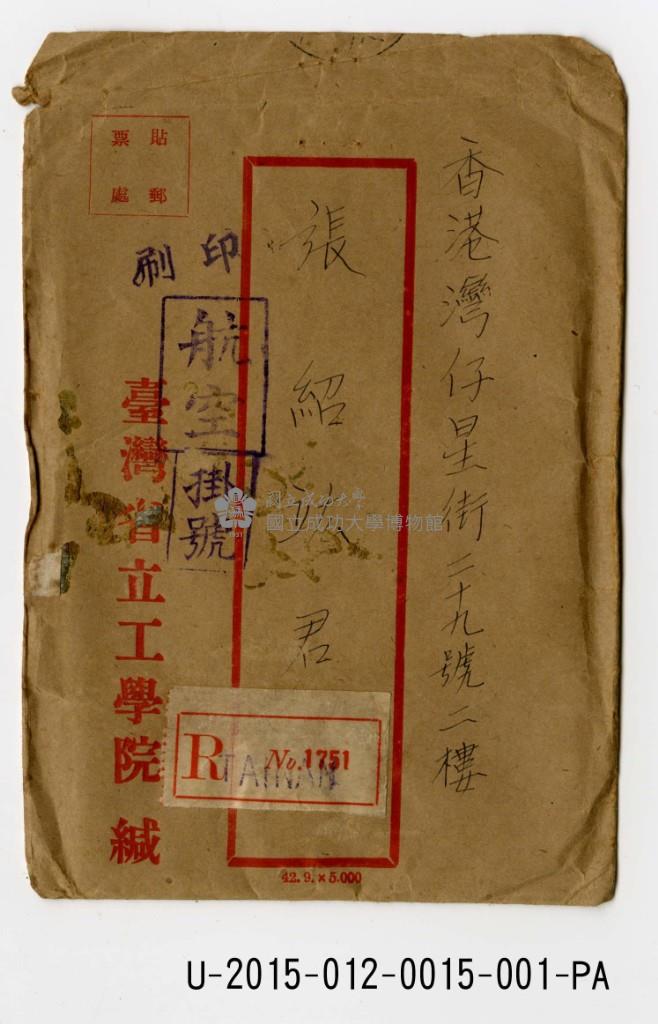 香港灣仔星街二十九號二樓
張紹 君
貼郵
票處
印刷
航空
掛號
臺灣省立工學院緘
R No.1751
TAINAN
42.9.×5.000
國立成功大學
國立成功大學博物館
1931
U-2015-012-0015-001-PA